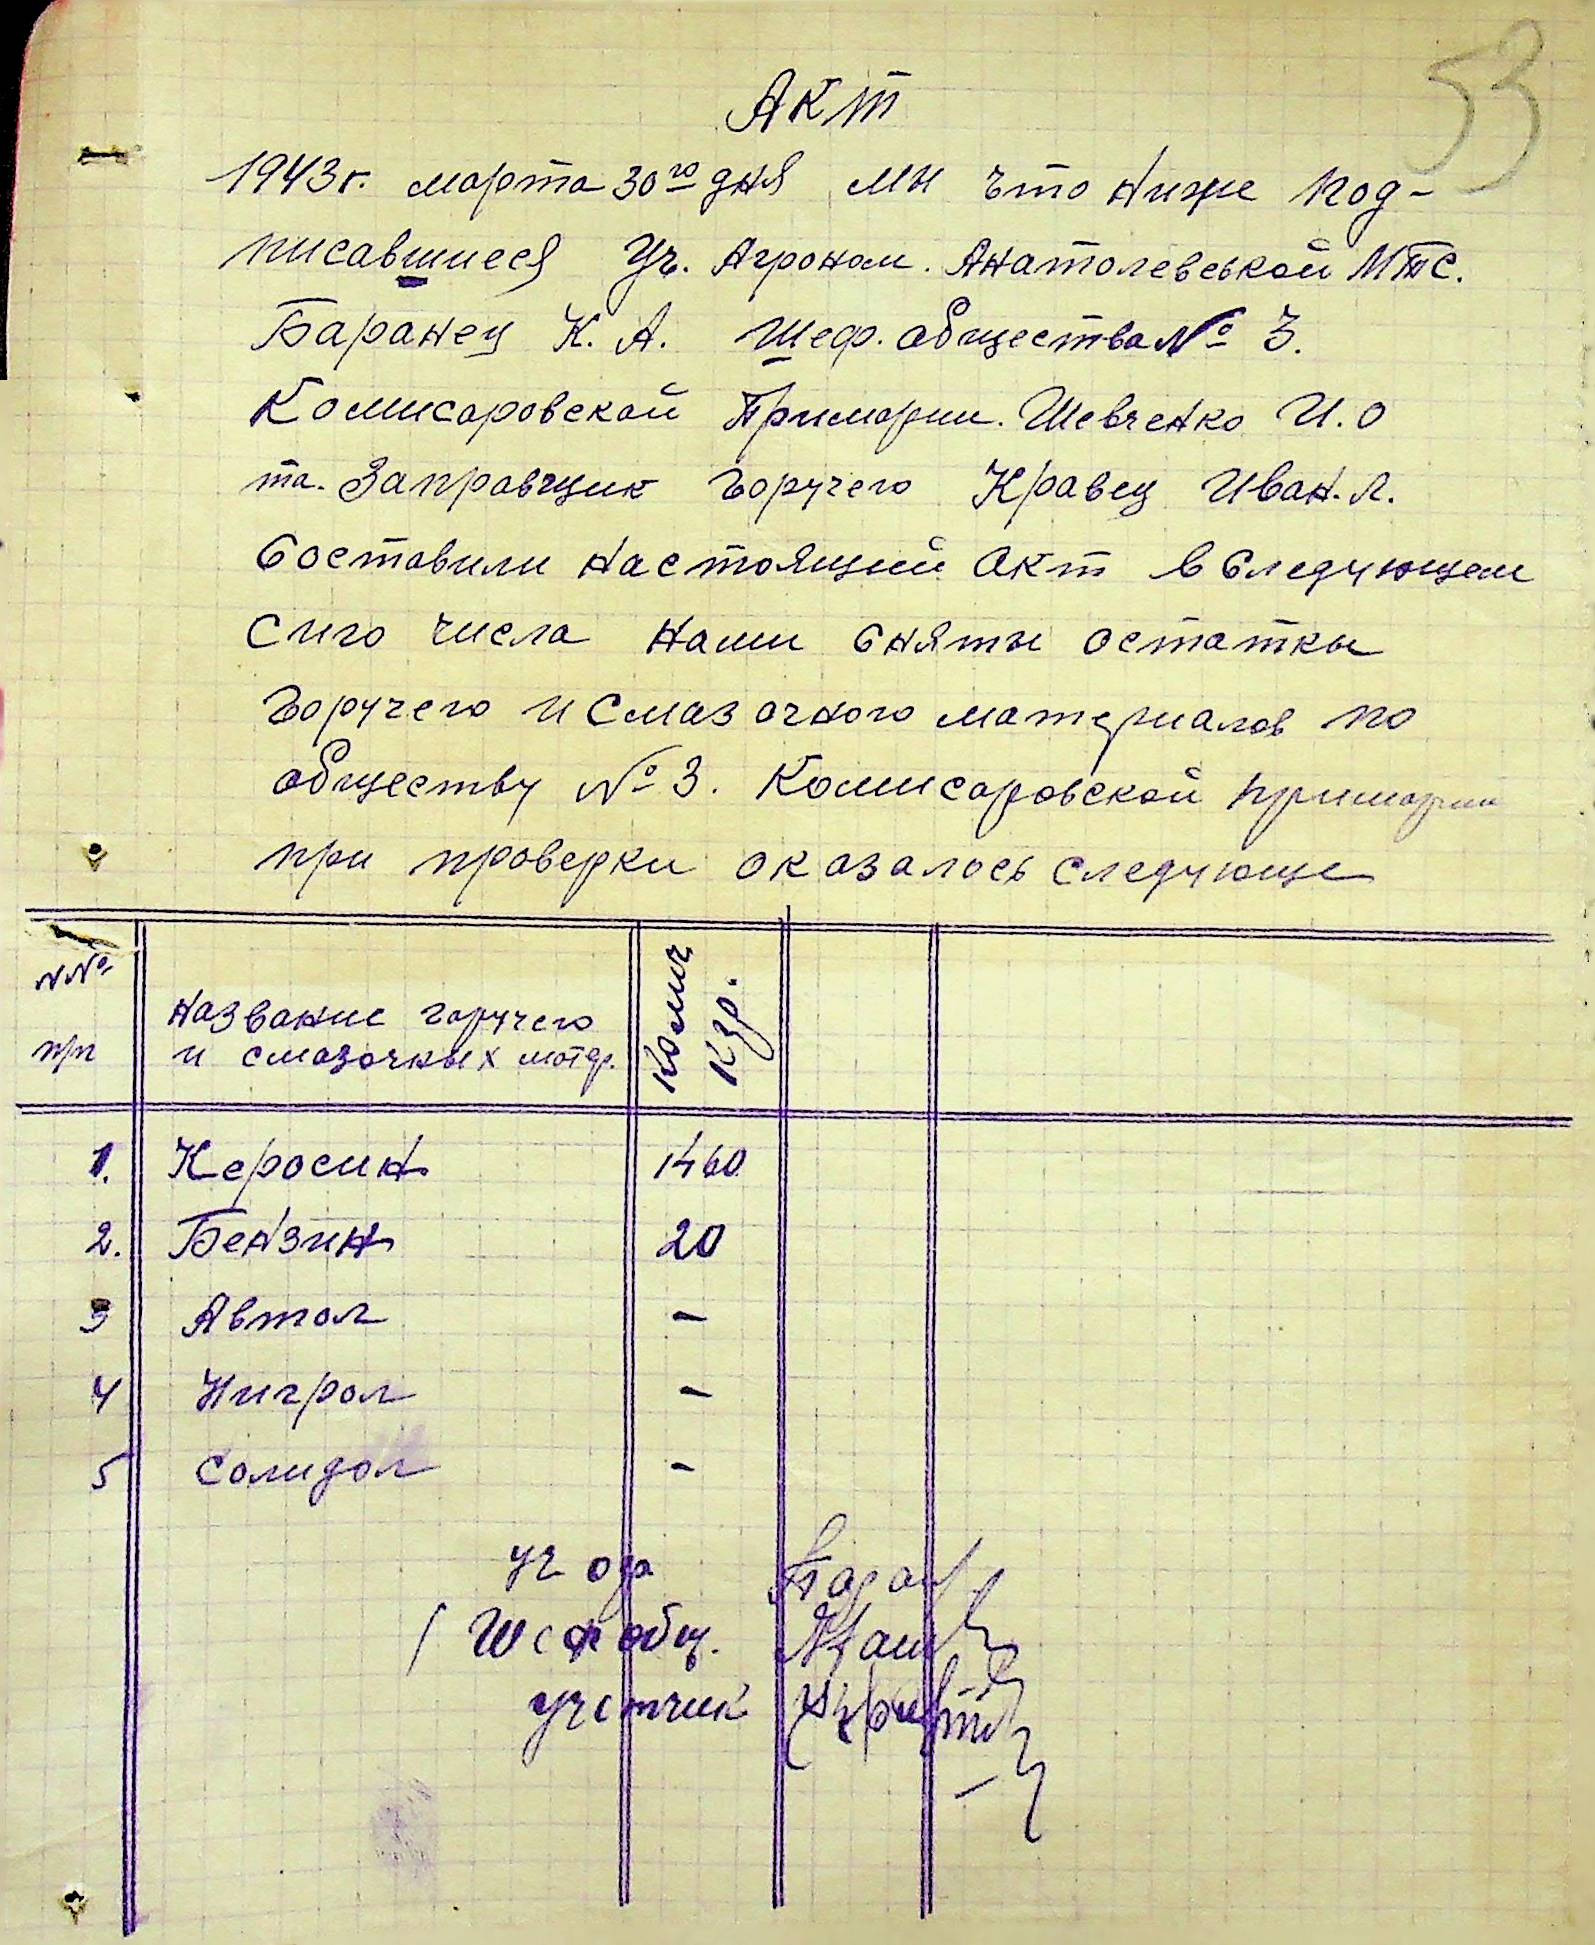 53
Акт
1943г. марта 30го дня мы что ниже под-
писавшиеся Уч. Агроном. Анатолевськой МТС.
Баранец К. А. Шеф. общества № 3.
Комисаровской Примарии. Шевченко И. О
та. Заправщик горучего Кравец Иван. Л.
Составили настоящий акт в следующем
Сиго числа нами сняты остатки
горучего и смазочного материалов по
обществу № 3. Комисаровской примарии
при проверки оказалось следующе
№№ п/п
Название горучего и смазочных матер.
Колич кгр.
1. Керосин 1460
2. Бензин 20
3 Автол –
4 Нигрол –
5 Солидол –
уч агр
Шеф общ.
учетчик